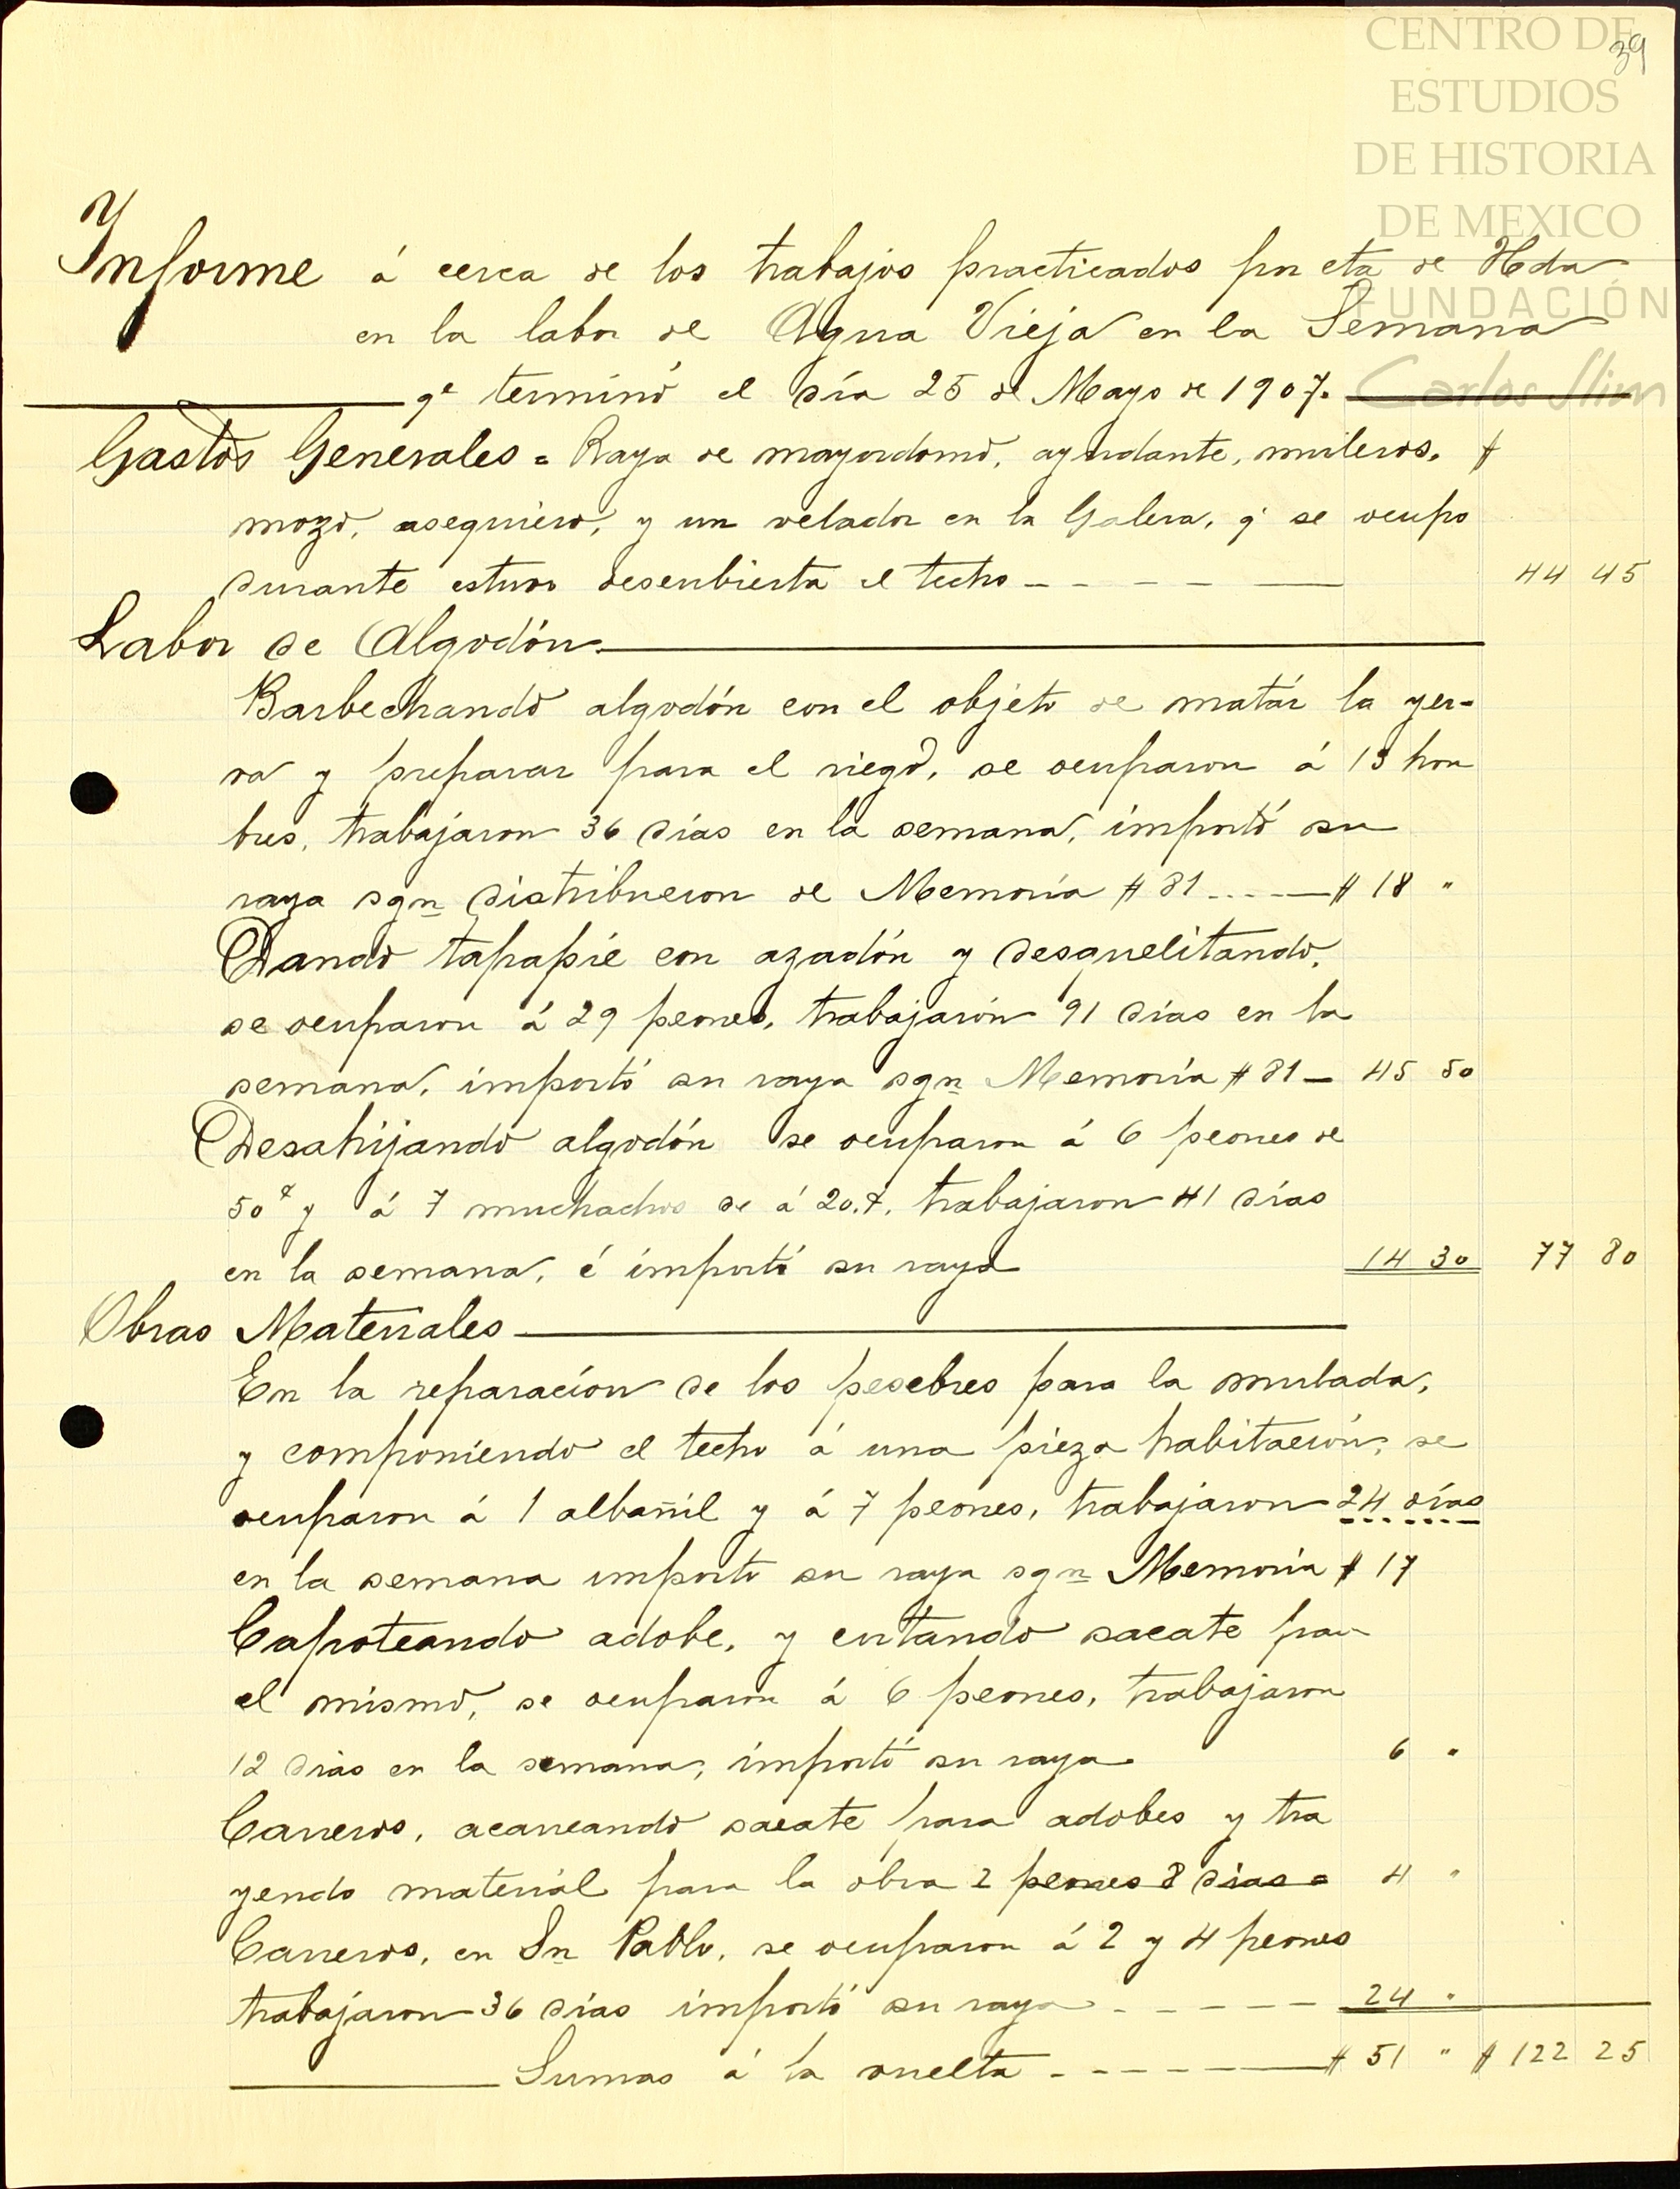 CENTRO DE
39
ESTUDIOS
DE HISTORIA
DE MEXICO
FUNDACIÓN
Carlos Slim
Informe á cerca de los trabajos practicados por cta de Hda
en la labor de Agua Vieja en la Semana
qe terminó el día 25 de Mayo de 1907.
Gastos Generales = Raya de mayordomo, ayudante, muleros, $
mozo, asequiero, y un velador en la Galera, q' se ocupo
durante estuvo descubierta el techo 44 45
Labor de Algodón.
Barbechando algodón con el objeto de matár la yer-
va y preparar para el riego, se ocuparon á 13 hom
bres, trabajaron 36 días en la semana, importó su
raya sgn distribucion de Memoria # 81 $ 18 "
Dando tapapié con azadón y desquelitando,
se ocuparon á 29 peones, trabajarón 91 días en la
semana, importó su raya sgn Memoria # 81 45 50
Desahijando algodón se ocuparon á 6 peones de
50¢ y á 7 muchachos de á 20.¢, trabajaron 41 días
en la semana, é importó su raya 14 30 77 80
Obras Materiales
En la reparación de los pesebres para la mulada,
y componiendo el techo á una pieza habitación, se
ocuparon á 1 albañil y á 7 peones, trabajaron 24 días
en la semana importo su raya sgn Memoria $ 17
Capoteando adobe, y cortando sacate para
el mismo, se ocuparon á 6 peones, trabajaron
12 dias en la semana, importó su raya 6 "
Carreros, acarreando sacate para adobes y tra
yendo material para la obra 2 peones 8 dias = 4 "
Carreros, en Sn Pablo, se ocuparon á 2 y 4 peones
trabajaron 36 dias importó su raya 24 "
Sumas á la vuelta $ 51 " $ 122 25